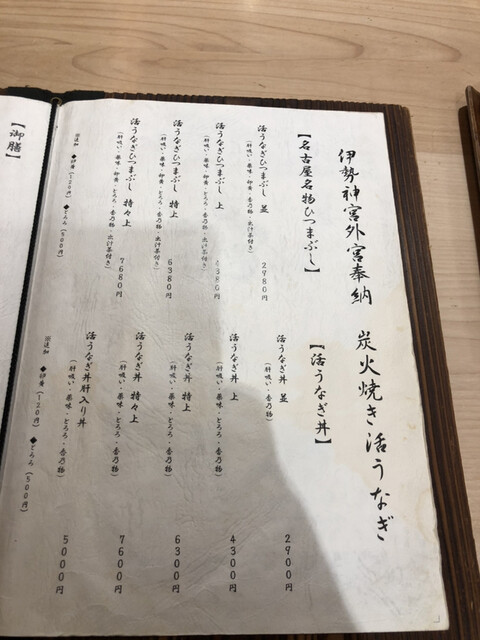 伊勢神宮外宮奉納 炭火焼き活うなぎ
【名古屋名物ひつまぶし】
活うなぎひつまぶし 並 2980円
(肝吸い・薬味・卵黄・とろろ・香乃物・出汁茶付き)
活うなぎひつまぶし 上 4380円
(肝吸い・薬味・卵黄・とろろ・香乃物・出汁茶付き)
活うなぎひつまぶし 特上 6380円
(肝吸い・薬味・卵黄・とろろ・香乃物・出汁茶付き)
活うなぎひつまぶし 特々上 7680円
(肝吸い・薬味・卵黄・とろろ・香乃物・出汁茶付き)
※追加
◆卵黄(120円) ◆とろろ(500円)
【活うなぎ丼】
活うなぎ丼 並 2900円
(肝吸い・薬味・とろろ・香乃物)
活うなぎ丼 上 4300円
(肝吸い・薬味・とろろ・香乃物)
活うなぎ丼 特上 6300円
(肝吸い・薬味・とろろ・香乃物)
活うなぎ丼 特々上 7600円
(肝吸い・薬味・とろろ・香乃物)
活うなぎ丼肝入り丼 5000円
(肝吸い・薬味・とろろ・香乃物)
※追加
◆卵黄(120円) ◆とろろ(500円)
【御膳】